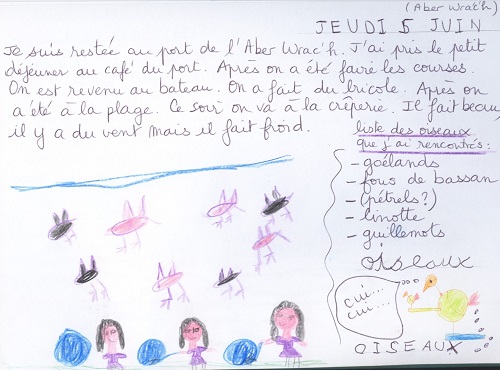 (Aber Wrac'h)
JEUDI 5 JUIN
Je suis restée au port de l'Aber Wrac'h. J'ai pris le petit
déjeuner au café du port. Après on a été faire les courses.
On est revenu au bateau. On a fait du bricole. Après on
a été à la plage. Ce soir on va à la crêperie. Il fait beau,
il y a du vent mais il fait froid.
liste des oiseaux
que j'ai rencontrés:
- goélands
- fous de bassan
- (pétrels?)
- linotte
- guillemots
oiseaux
cui...
cui...
OISEAUX